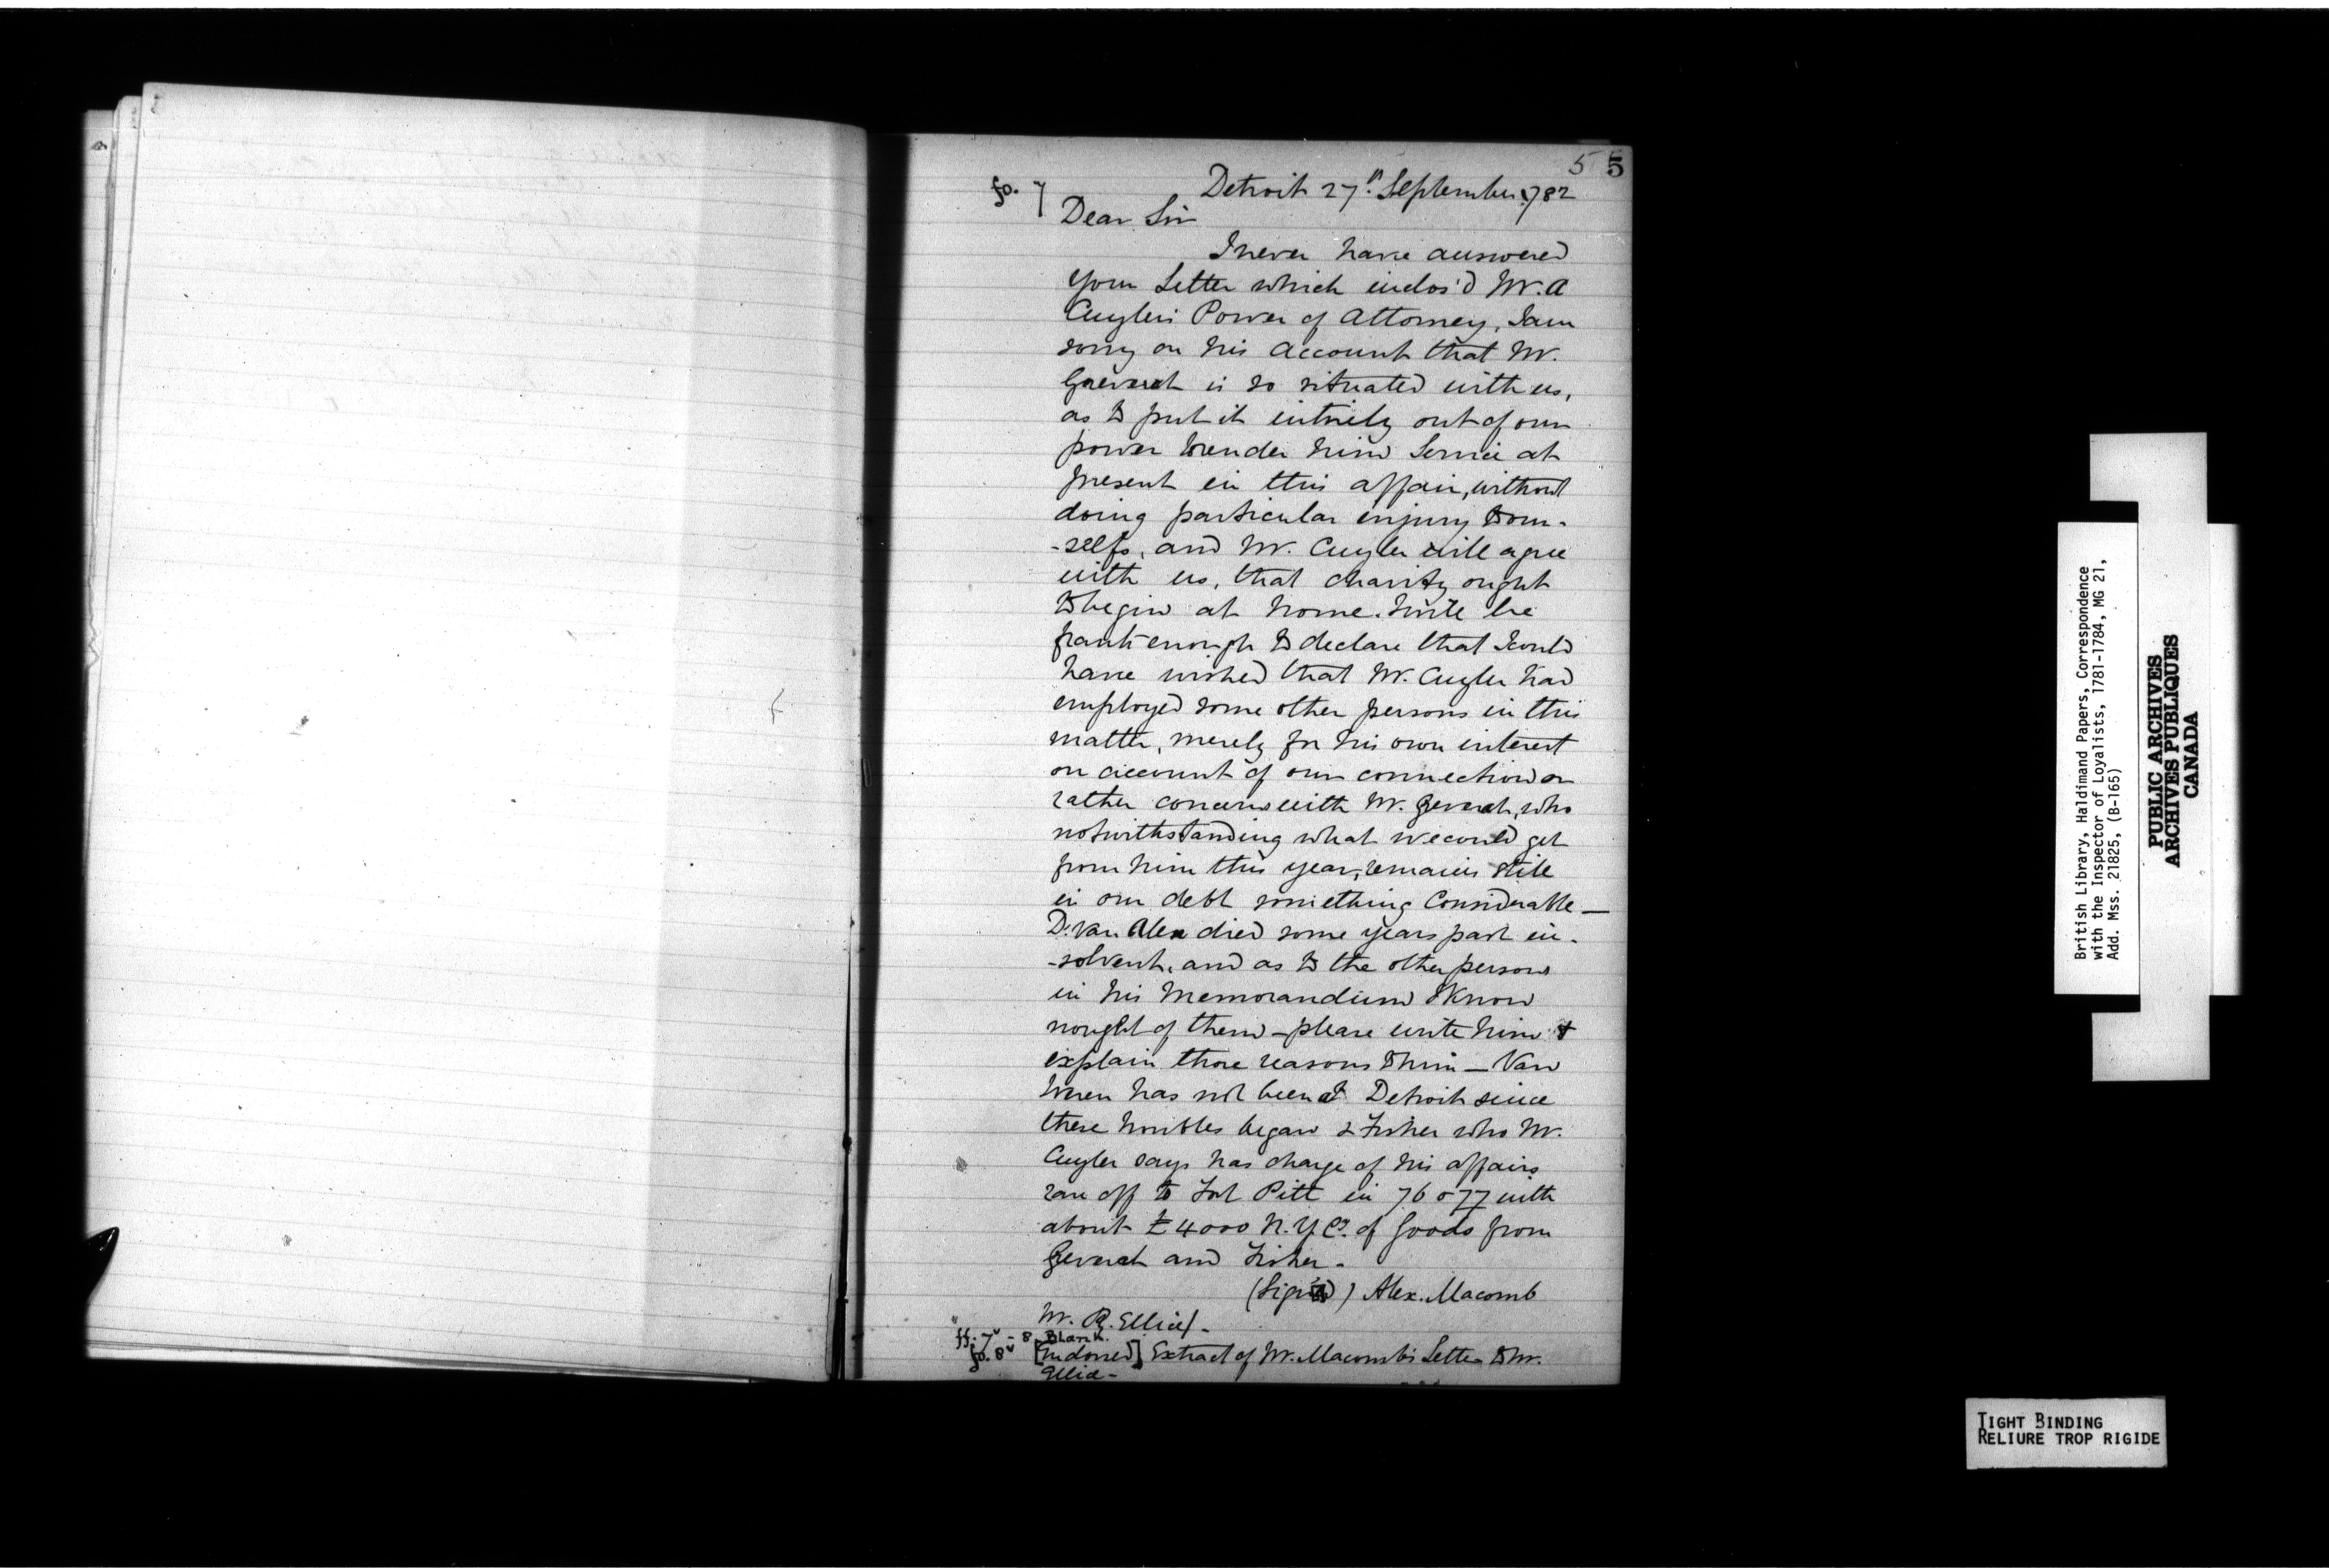 5 5
fo. 7 Detroit 27th. September 1782
Dear Sir
I never have answered
your Letter which inclos'd Mr. A
Cuyler's Power of Attorney, I am
sorry on his account that Mr.
Greverat is so situated with us,
as to put it entirely out of our
power to render him Service at
present in this affair, without
doing particular injury to our-
-selfs, and Mr. Cuyler will agree
with us, that charity ought
to begin at home. I will be
frank enough to declare that I could
have wished that Mr. Cuyler had
employed some other persons in this
matter, merely for his own interest
on account of our connection or
rather concerns with Mr. Geverat, who
notwithstanding what we could get
from him this year, remains still
in our debt something Considerable—
D. Van Alen died some years past in-
-solvent, and as to the other persons
in his Memorandum I know
nought of them – please write him &
explain those reasons to him – Van
has not been at Detroit since
these troubles began & Fisher who Mr.
Cuyler says has charge of his affairs
ran off to Fort Pitt in 76 or 77 with
about £4000 N.Y. Cy. of Goods from
Geverat and Fisher –
(Sign'd) Alex. Macomb
Mr. R. Ellice –
ff. 7v – 8 Blank.
fo. 8v [Indorsed] Extract of Mr. Macomb's Letter to Mr.
Ellice –
British Library, Haldimand Papers, Correspondence
with the Inspector of Loyalists, 1781-1784, MG 21,
Add. Mss. 21825, (B-165)
PUBLIC ARCHIVES
ARCHIVES PUBLIQUES
CANADA
TIGHT BINDING
RELIURE TROP RIGIDE